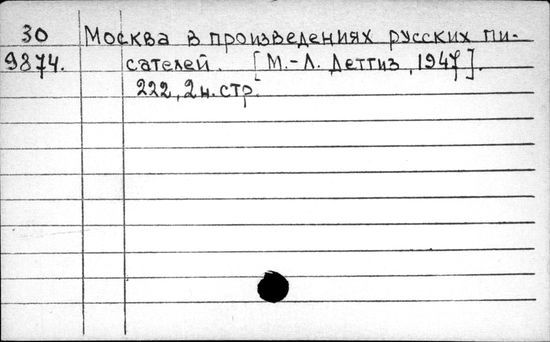 30 Москва в произведениях русских пи-
9874. сателей. [М.-Л. Детгиз, 1947].
222, 2 н. стр.